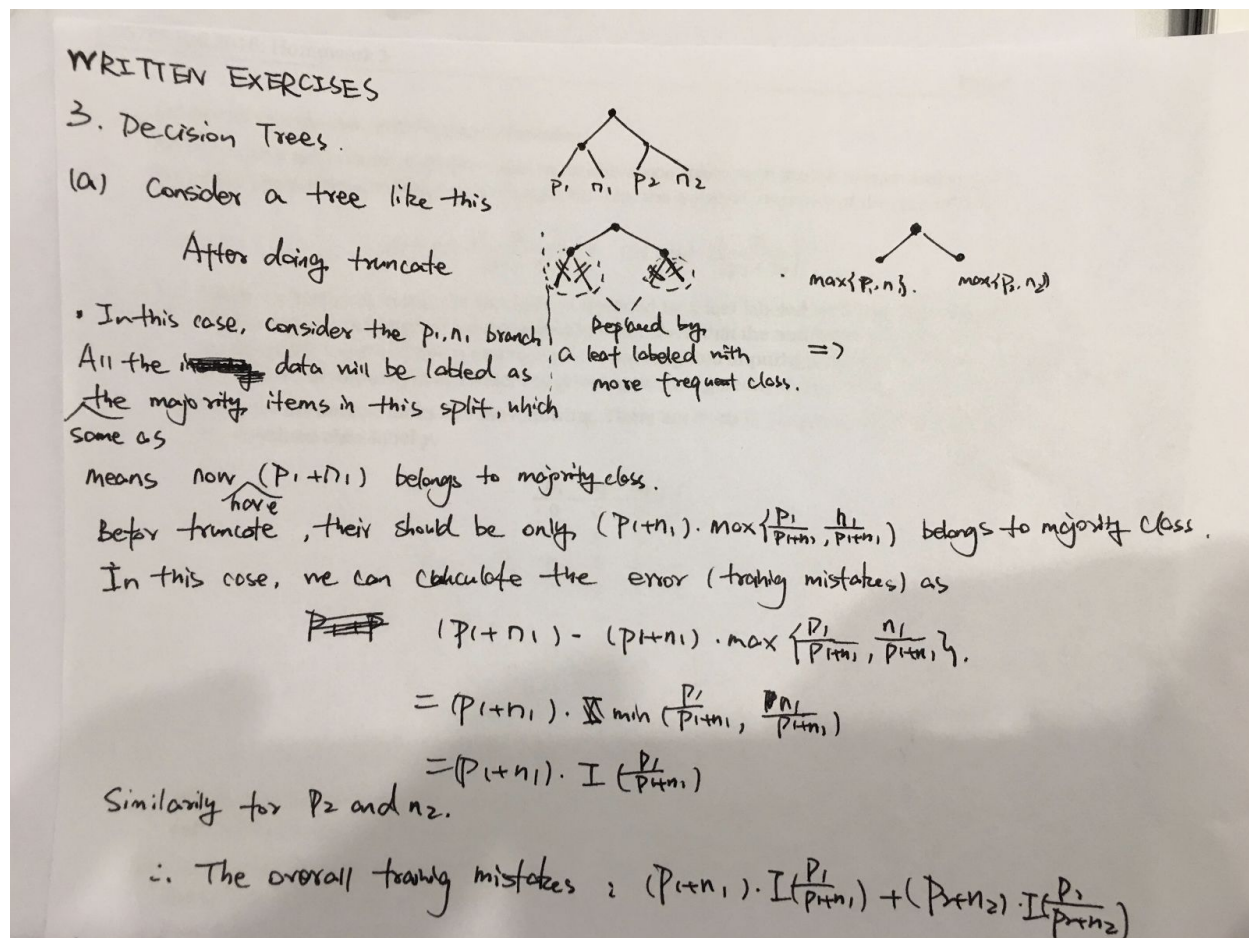 WRITTEN EXERCISES
3. Decision Trees.
(a) Consider a tree like this
P1 n1 P2 n2
After doing truncate
max{P1, n1}. max{P2, n2)
Replaced by
a leaf labeled with
more frequent class.
=>
• In this case, consider the P1, n1 branch
All the data will be labled as
the majority items in this split, which
same as
means now (P1+n1) belongs to majority class.
have
Befor truncate, their should be only (P1+n1) · max{P1/P1+n1, n1/P1+n1) belongs to majority class.
In this case, we can calculate the error (training mistakes) as
(P1+n1) - (P1+n1) · max {P1/P1+n1, n1/P1+n1}.
= (P1+n1) · min (P1/P1+n1, n1/P1+n1)
= (P1+n1) · I (P1/P1+n1)
Similarily for P2 and n2.
∴ The overall training mistakes : (P1+n1) · I(P1/P1+n1) + (P2+n2) · I(P2/P2+n2)